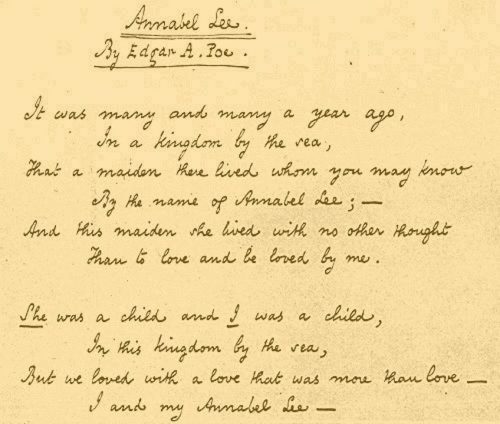 Annabel Lee.
By Edgar A. Poe.
It was many and many a year ago,
In a kingdom by the sea,
That a maiden there lived whom you may know
By the name of Annabel Lee; —
And this maiden she lived with no other thought
Than to love and be loved by me.
She was a child and I was a child,
In this kingdom by the sea,
But we loved with a love that was more than love —
I and my Annabel Lee —